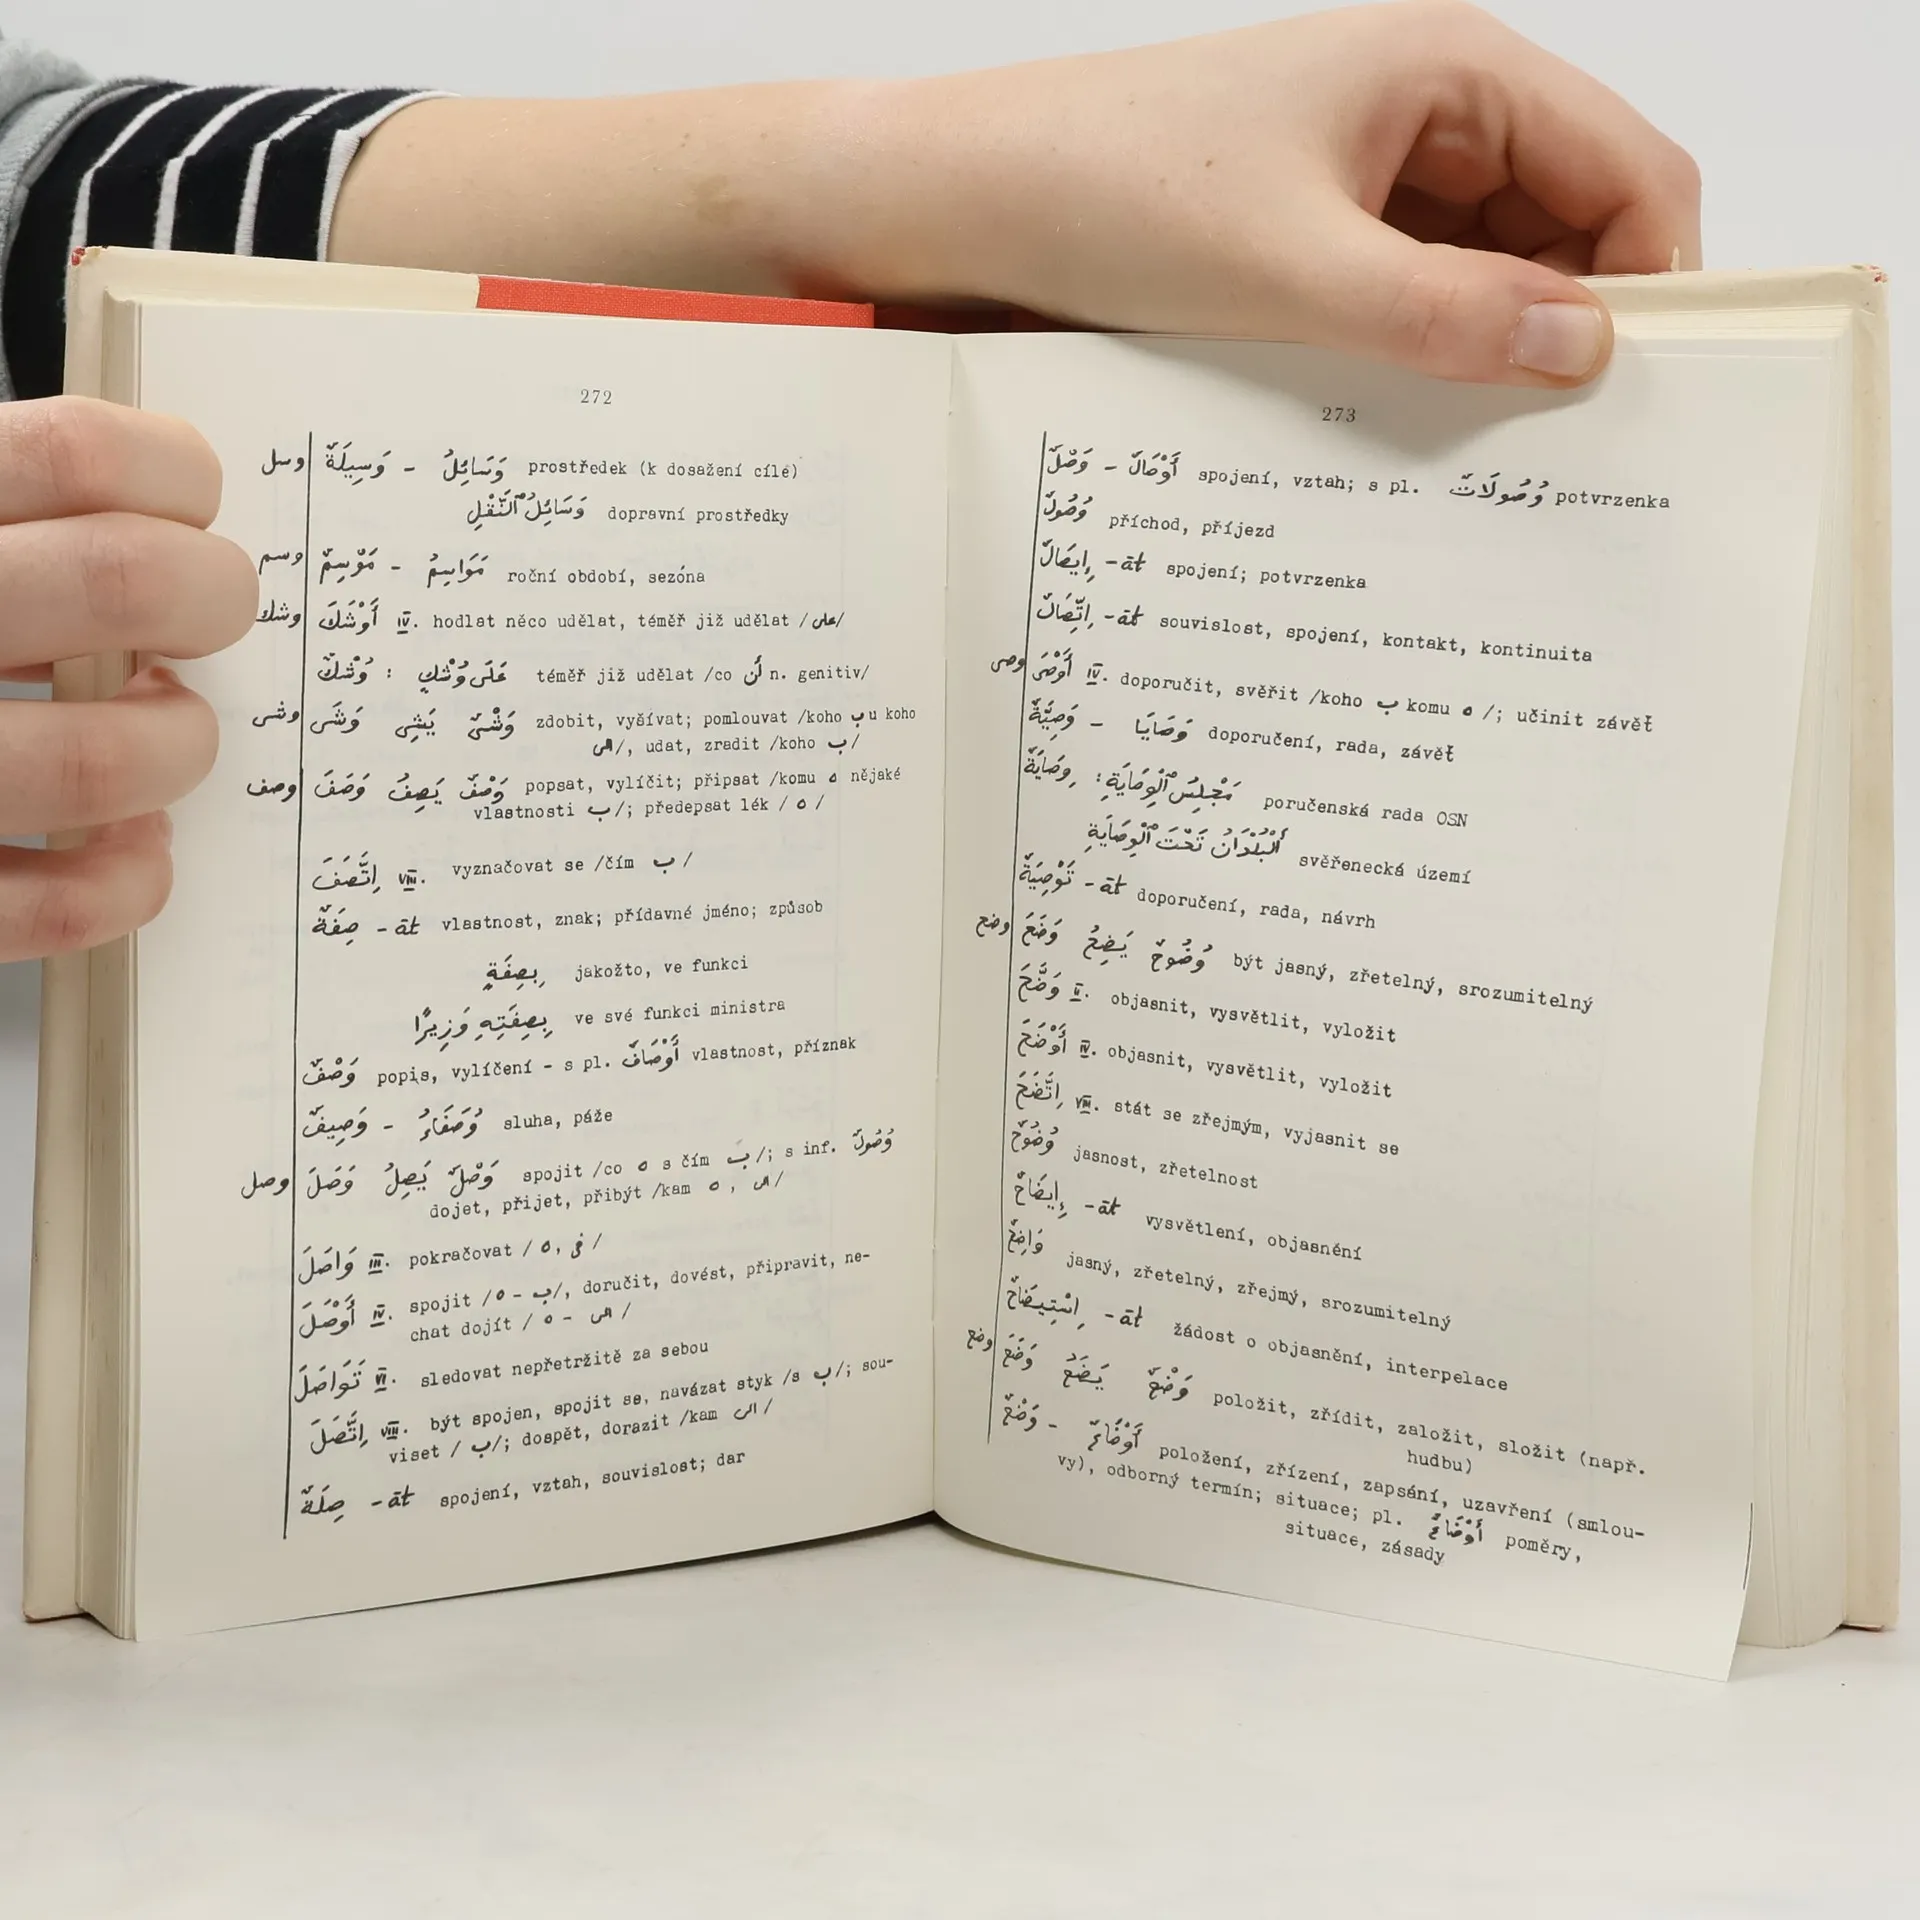 272
وسل وَسِيلَةٌ - وَسَائِلُ prostředek (k dosažení cíle)
وَسَائِلُ ٱلنَّقْلِ dopravní prostředky
وسم مَوْسِمٌ - مَوَاسِمُ roční období, sezóna
وشك أَوْشَكَ IV. hodlat něco udělat, téměř již udělat /على/
وُشْكٌ : عَلَى وُشْكِ téměř již udělat /co أن n. genitiv/
وشى وَشَى يَشِى وَشْىٌ zdobit, vyšívat; pomlouvat /koho ب u koho
الى/, udat, zradit /koho ب/
وصف وَصَفَ يَصِفُ وَصْفٌ popsat, vylíčit; připsat /komu ه nějaké
vlastnosti ب/; předepsat lék / ه /
اِتَّصَفَ VIII. vyznačovat se /čím ب /
صِفَةٌ - āt vlastnost, znak; přídavné jméno; způsob
بِصِفَةِ jakožto, ve funkci
بِصِفَتِهِ وَزِيرًا ve své funkci ministra
وَصْفٌ popis, vylíčení - s pl. أَوْصَافٌ vlastnost, příznak
وَصِيفٌ - وُصَفَاءُ sluha, páže
وصل وَصَلَ يَصِلُ وَصْلٌ spojit /co ه s čím ب/; s inf. وُصُولٌ
dojet, přijet, přibýt /kam ه , الى/
وَاصَلَ III. pokračovat / ه, فى /
أَوْصَلَ IV. spojit /ه - ب/, doručit, dovést, připravit, ne-
chat dojít / ه - الى /
تَوَاصَلَ VI. sledovat nepřetržitě za sebou
اِتَّصَلَ VIII. být spojen, spojit se, navázat styk /s ب/; sou-
viset / ب/; dospět, dorazit /kam الى /
صِلَةٌ - āt spojení, vztah, souvislost; dar
273
وَصْلٌ - أَوْصَالٌ spojení, vztah; s pl. وُصُولَاتٌ potvrzenka
وُصُولٌ příchod, příjezd
إِيصَالٌ - āt spojení; potvrzenka
اِتِّصَالٌ - āt souvislost, spojení, kontakt, kontinuita
وصى أَوْصَى IV. doporučit, svěřit /koho ب komu ه /; učinit závěť
وَصِيَّةٌ - وَصَايَا doporučení, rada, závěť
وِصَايَةٌ : مَجْلِسُ ٱلْوِصَايَةِ poručenská rada OSN
أَلْبُلْدَانُ تَحْتَ ٱلْوِصَايَةِ svěřenecká území
تَوْصِيَةٌ - āt doporučení, rada, návrh
وضح وَضَحَ يَضِحُ وُضُوحٌ být jasný, zřetelný, srozumitelný
وَضَّحَ II. objasnit, vysvětlit, vyložit
أَوْضَحَ IV. objasnit, vysvětlit, vyložit
اِتَّضَحَ VIII. stát se zřejmým, vyjasnit se
وُضُوحٌ jasnost, zřetelnost
إِيضَاحٌ - āt vysvětlení, objasnění
وَاضِحٌ jasný, zřetelný, zřejmý, srozumitelný
اِسْتِيضَاحٌ - āt žádost o objasnění, interpelace
وضع وَضَعَ يَضَعُ وَضْعٌ položit, zřídit, založit, složit (např.
hudbu)
وَضْعٌ - أَوْضَاعٌ položení, zřízení, zapsání, uzavření (smlou-
vy), odborný termín; situace; pl. أَوْضَاعٌ poměry,
situace, zásady